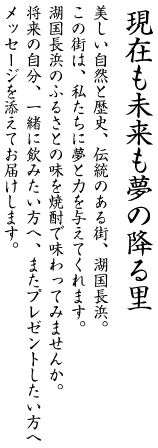 現在も未来も夢の降る里
美しい自然と歴史、伝統のある街、湖国長浜。
この街は、私たちに夢と力を与えてくれます。
湖国長浜のふるさとの味を焼酎で味わってみませんか。
将来の自分、一緒に飲みたい方へ、またプレゼントしたい方へ
メッセージを添えてお届けします。